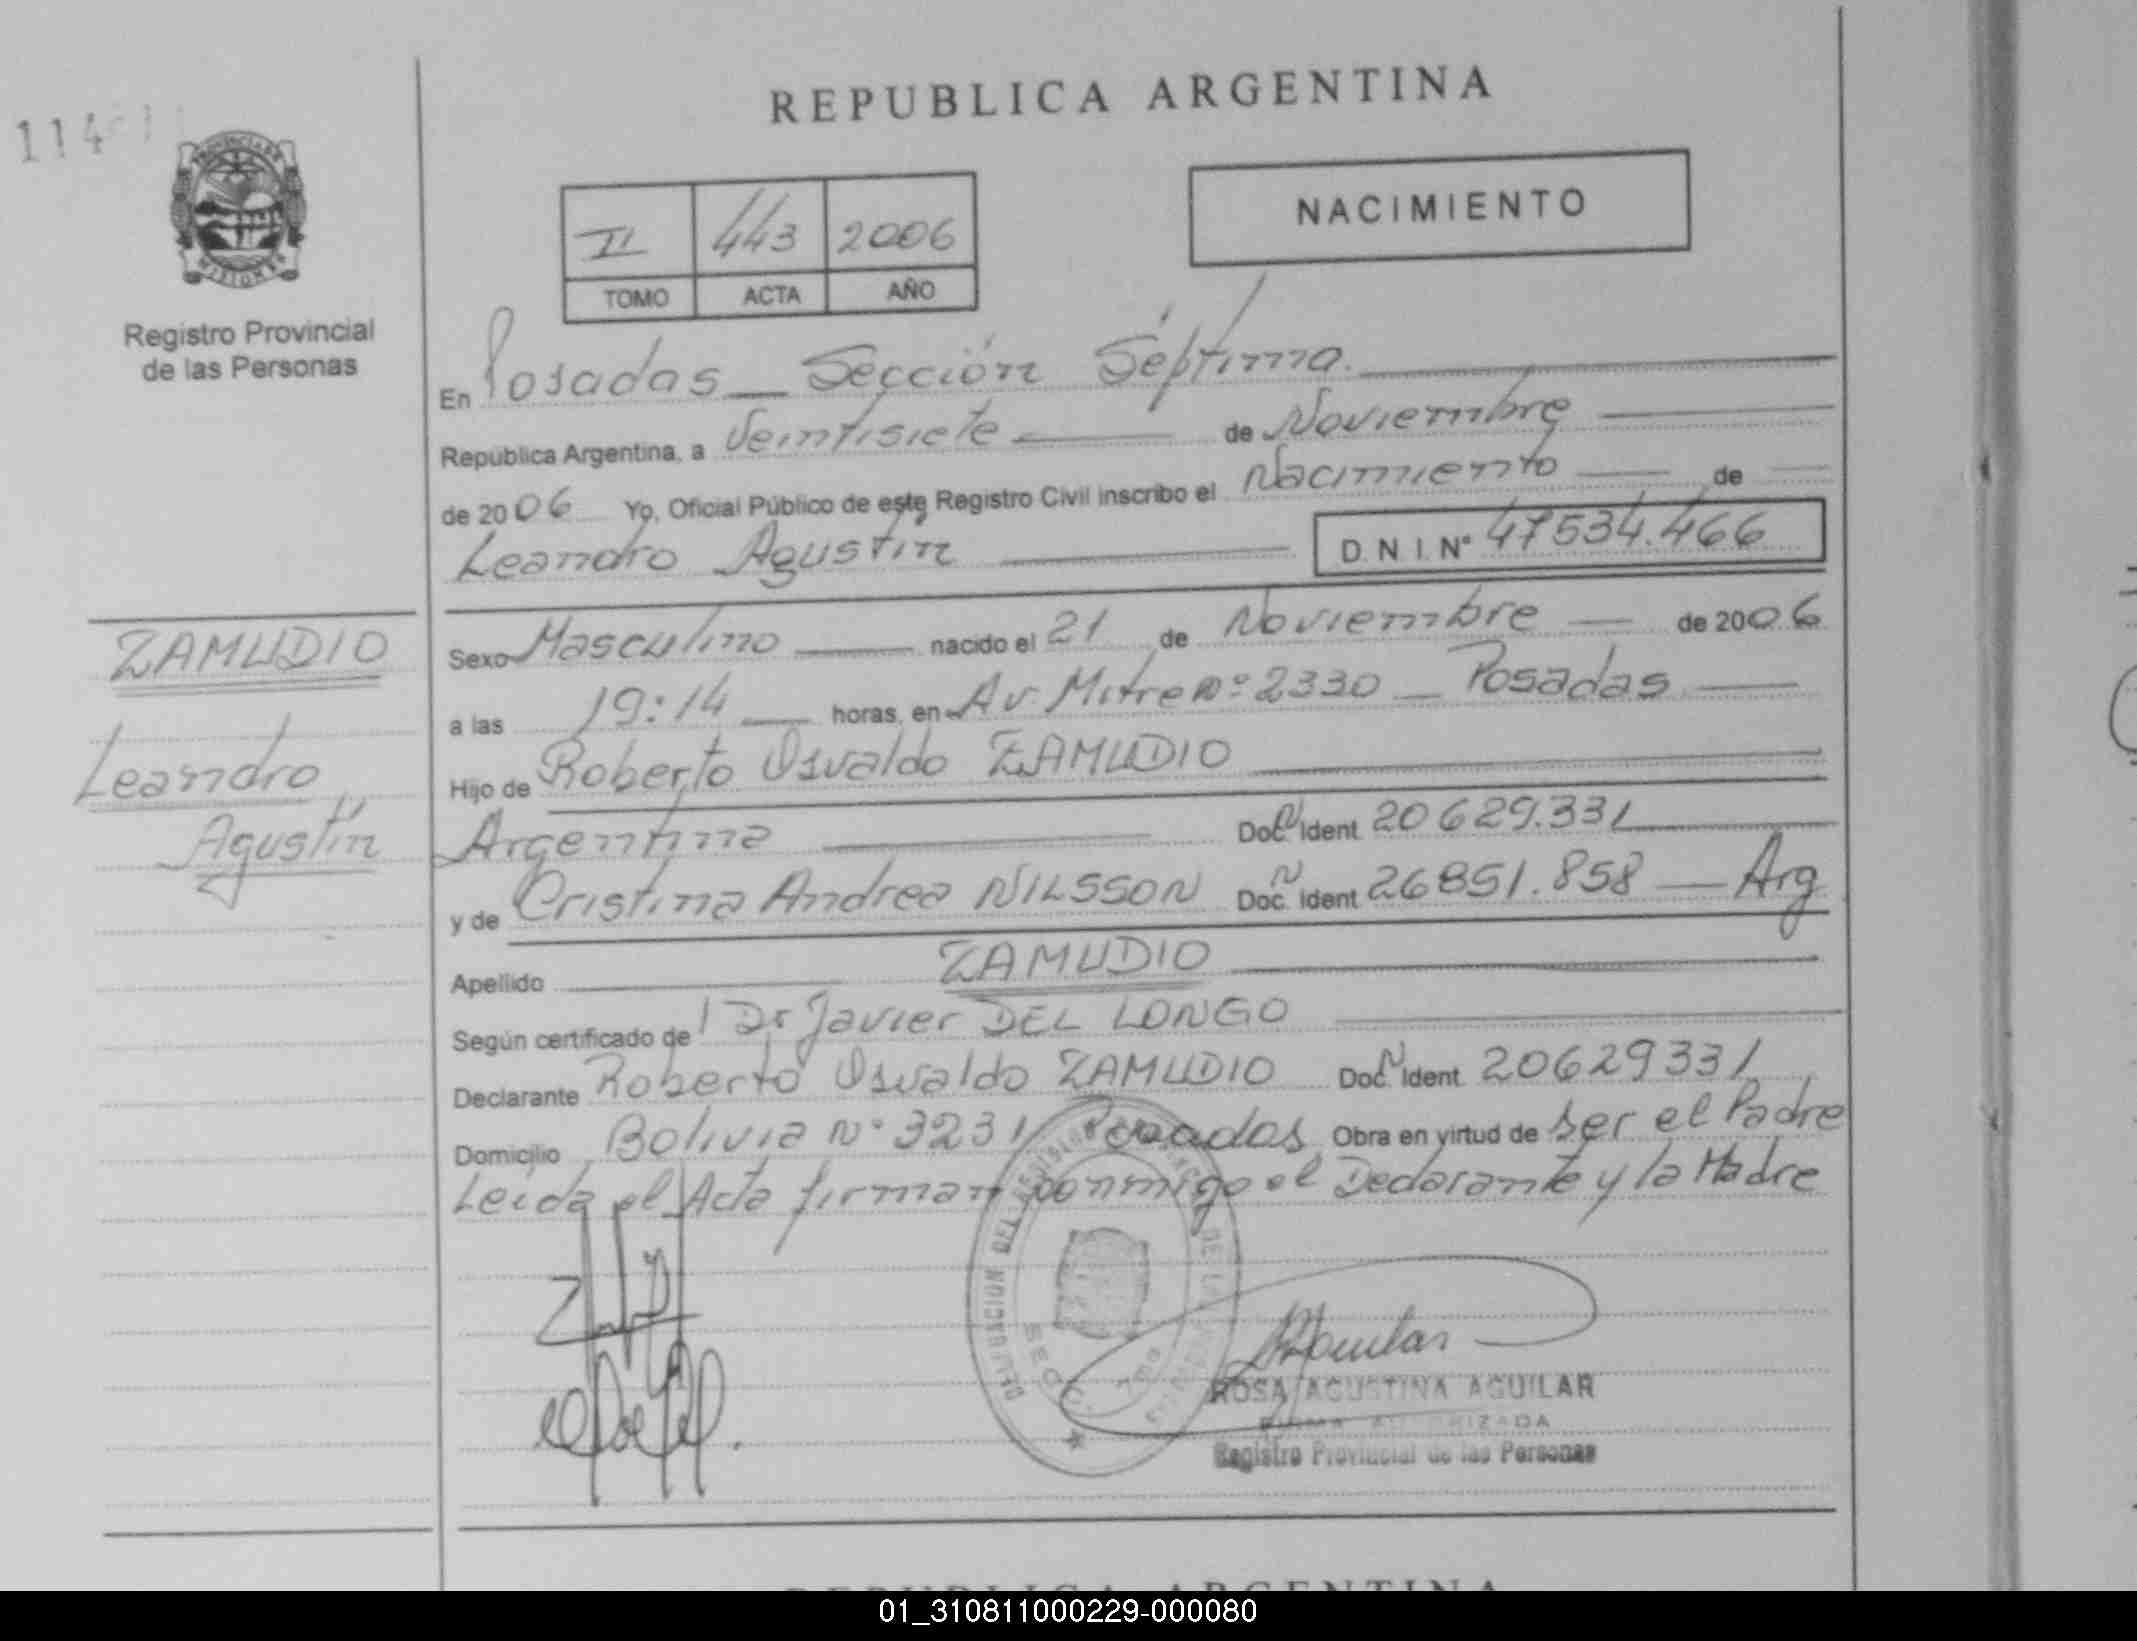 REPUBLICA ARGENTINA
114
PROVINCIA DE
MISIONES
Registro Provincial
de las Personas
II 443 2006
TOMO ACTA AÑO
NACIMIENTO
En Posadas — Sección Séptima.
Republica Argentina, a Veintisiete de Noviembre
de 2006 Yo, Oficial Público de este Registro Civil inscribo el Nacimiento de
Leandro Agustín D.N.I.Nº 47534.466
ZAMUDIO
Leandro
Agustín
Sexo Masculino nacido el 21 de Noviembre de 2006
a las 19:14 horas, en Av. Mitre nº 2330 — Posadas
Hijo de Roberto Osvaldo ZAMUDIO
Argentina Doc. N Ident 20629.331
y de Cristina Andrea NILSSON Doc. N Ident 26851.858 — Arg
Apellido ZAMUDIO
Según certificado de Dr Javier DEL LONGO
Declarante Roberto Osvaldo ZAMUDIO Doc. N Ident 20629331
Domicilio Bolivia Nº 3231 Posadas Obra en virtud de ser el Padre
Leida el Acta firman conmigo el Declarante y la Madre
Aguilar
ROSA AGUSTINA AGUILAR
FIRMA AUTORIZADA
Registro Provincial de las Personas
REPUBLICA ARGENTINA
01_310811000229-000080